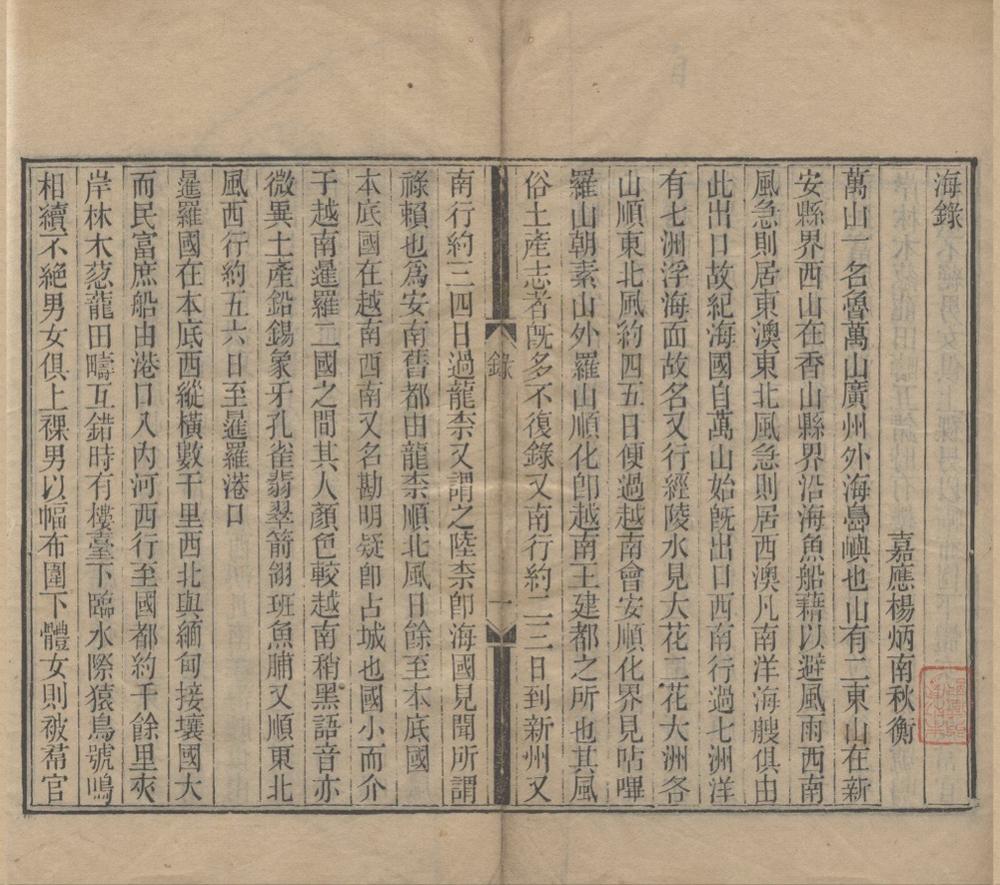 海錄
嘉應楊炳南秋衡
萬山一名魯萬山廣州外海島嶼也山有二東山在新
安縣界西山在香山縣界沿海魚船藉以避風雨西南
風急則居東澳東北風急則居西澳凡南洋海艘俱由
此出口故紀海國自萬山始旣出口西南行過七洲洋
有七洲浮海面故名又行經陵水見大花二花大洲各
山順東北風約四五日便過越南會安順化界見呫嗶
羅山朝素山外羅山順化卽越南王建都之所也其風
俗土產志者旣多不復錄又南行約二三日到新州又
錄
一
南行約三四日過龍柰又謂之陸柰卽海國見聞所謂
祿賴也爲安南舊都由龍柰順北風日餘至本底國
本底國在越南西南又名勘明疑卽占城也國小而介
于越南暹羅二國之間其人顏色較越南稍黑語音亦
微異土產鉛錫象牙孔雀翡翠箭翎班魚脯又順東北
風西行約五六日至暹羅港口
暹羅國在本底西縱橫數千里西北與緬甸接壤國大
而民富庶船由港口入內河西行至國都約千餘里夾
岸林木葱蘢田疇互錯時有樓臺下臨水際猿鳥號鳴
相續不絕男女俱上裸男以幅布圍下體女則被帬官